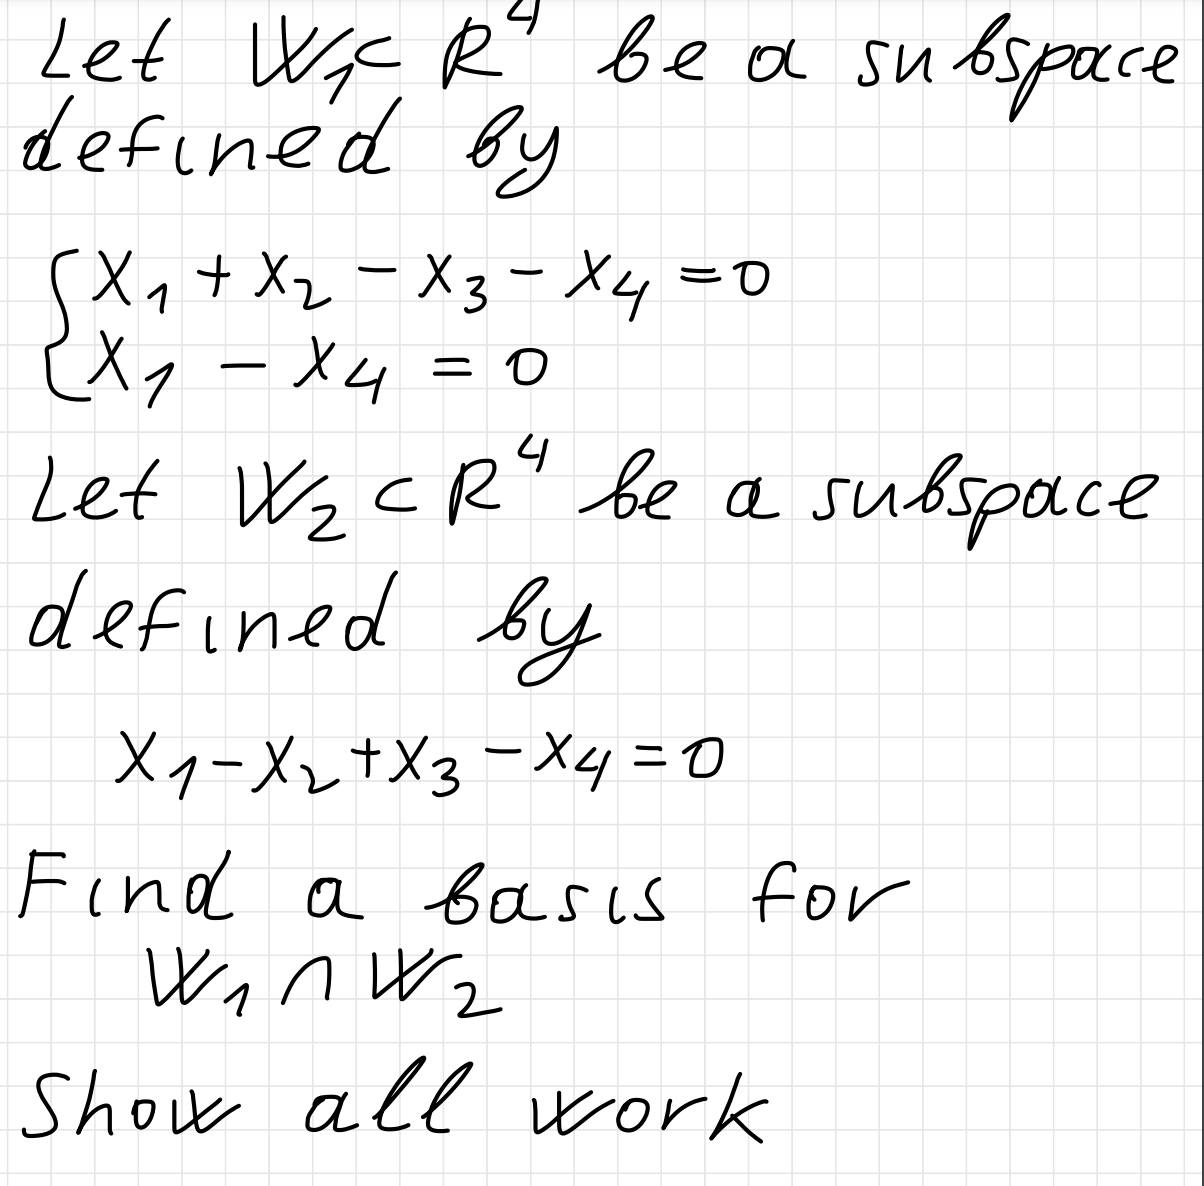 Let W₁ ⊂ R⁴ be a subspace
defined by
{ x₁ + x₂ - x₃ - x₄ = 0
{ x₁ - x₄ = 0
Let W₂ ⊂ R⁴ be a subspace
defined by
x₁ - x₂ + x₃ - x₄ = 0
Find a basis for
W₁ ∩ W₂
Show all work